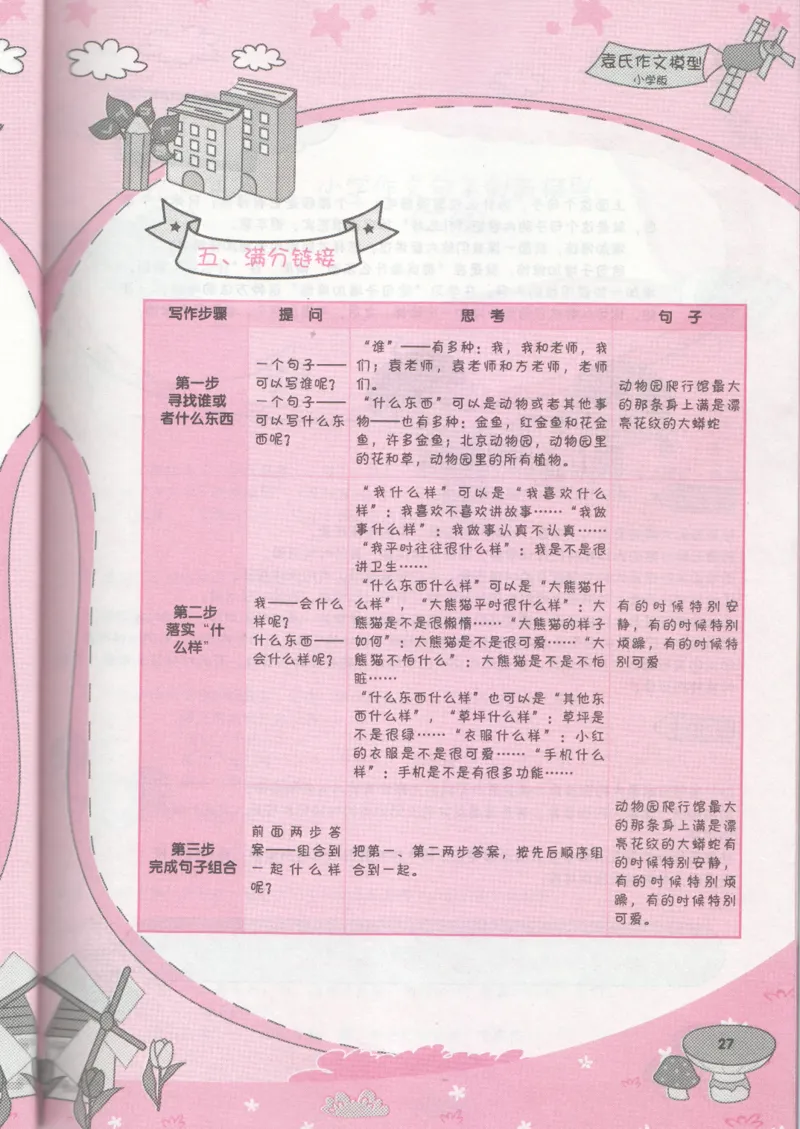 袁氏作文模型
小学版
五、满分链接
写作步骤
提 问
思 考
句 子
第一步
寻找谁或
者什么东西
一个句子——
可以写谁呢？
一个句子——
可以写什么东
西呢？
“谁”——有多种：我，我和老师，我
们；袁老师，袁老师和方老师，老师
们。
“什么东西”可以是动物或者其他事
物——也有多种：金鱼，红金鱼和花金
鱼，许多金鱼；北京动物园，动物园里
的花和草，动物园里的所有植物。
动物园爬行馆最大
的那条身上满是漂
亮花纹的大蟒蛇
第二步
落实“什
么样”
我——会什么
样呢？
什么东西——
会什么样呢？
“我什么样”可以是“我喜欢什么
样”：我喜欢不喜欢讲故事……“我做
事什么样”：我做事认真不认真……
“我平时往往很什么样”：我是不是很
讲卫生……
“什么东西什么样”可以是“大熊猫什
么样”，“大熊猫平时很什么样”：大
熊猫是不是很懒惰……“大熊猫的样子
如何”：大熊猫是不是很可爱……“大
熊猫不怕什么”：大熊猫是不是不怕
脏……
“什么东西什么样”也可以是“其他东
西什么样”，“草坪什么样”：草坪是
不是很绿……“衣服什么样”：小红
的衣服是不是很可爱……“手机什么
样”：手机是不是有很多功能……
有的时候特别安
静，有的时候特别
烦躁，有的时候特
别可爱
第三步
完成句子组合
前面两步答
案——组合到
一起什么样
呢？
把第一、第二两步答案，按先后顺序组
合到一起。
动物园爬行馆最大
的那条身上满是漂
亮花纹的大蟒蛇有
的时候特别安静，
有的时候特别烦
躁，有的时候特别
可爱。
27